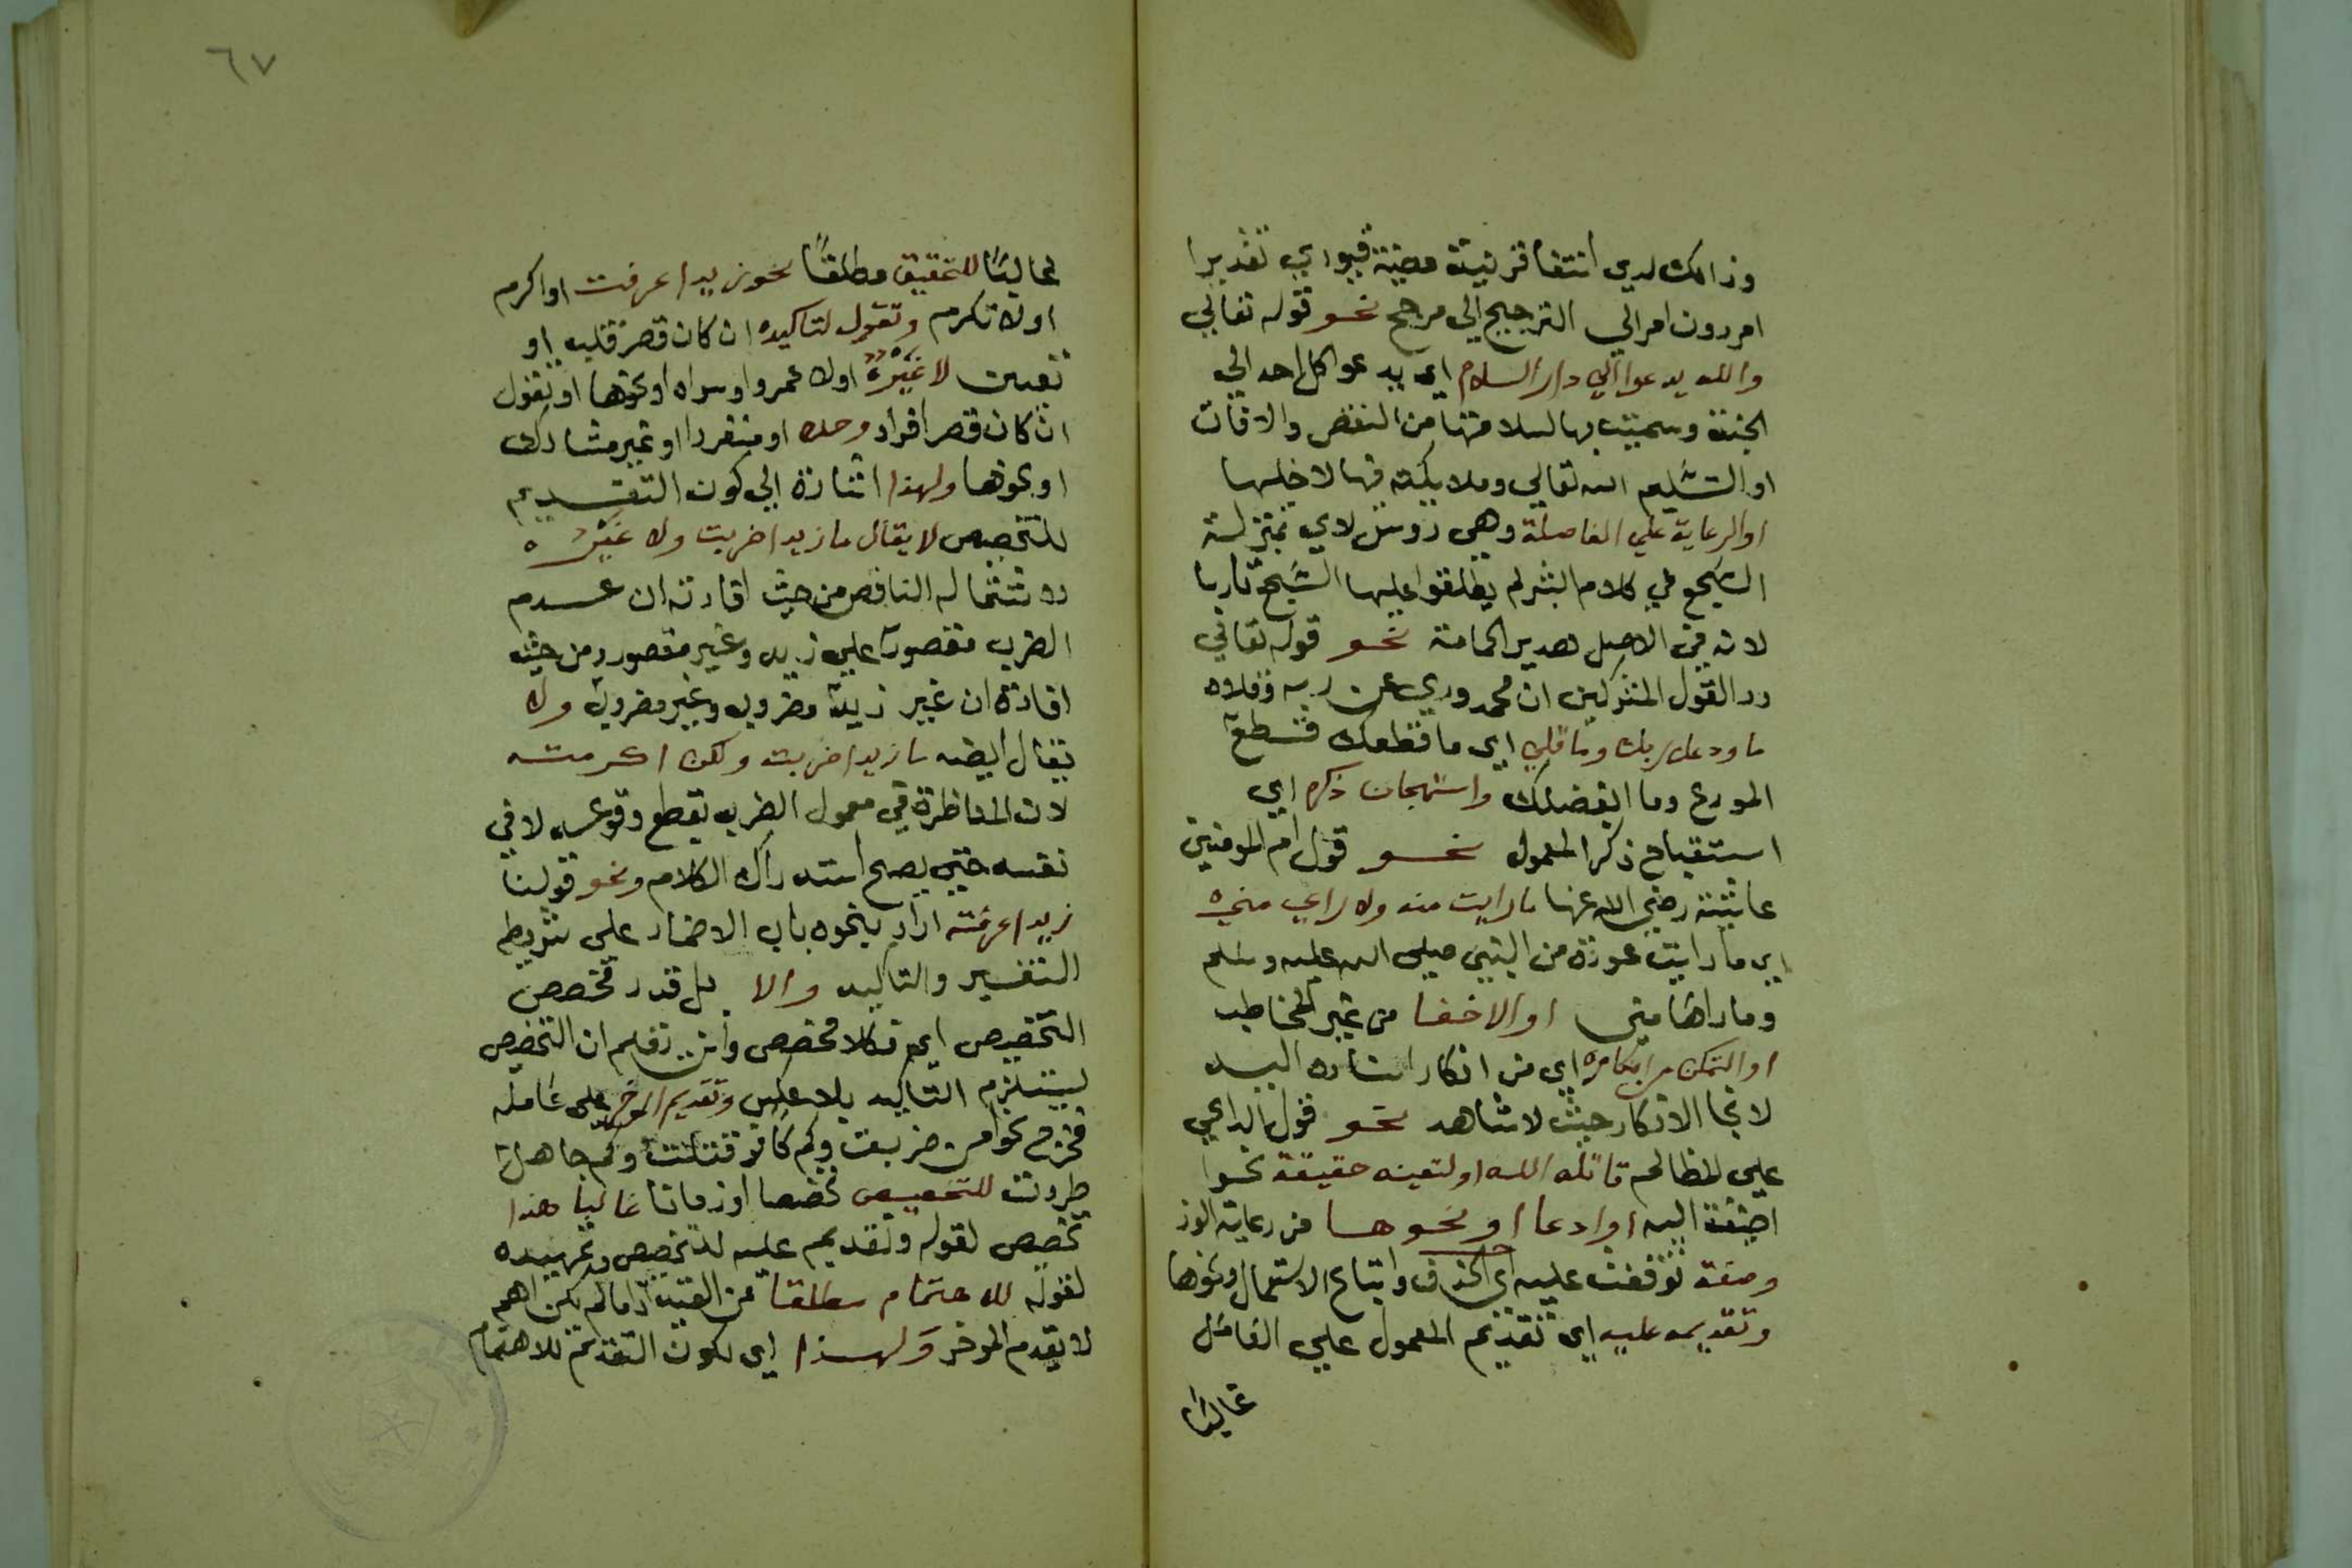 وذالك لدي انتفا قرنيته معينة فيودي تقديرا
امر دون امر الي الترجيح الي مرجح نحو قوله تعالي
والله يدعوا الي دار السلام اي يدعو اكل احد الي
الجنة وسميت بها لسلامتها من النقص والافات
او التسليم الله تعالي وملايكته فيها لاخلها
او الرعاية علي الفاصلة وهي روس لاي بمنزلة
السجع في كلام البشر لم يطلقوا عليها السجع تاربا
لانه في الاصل هدير الحمامة نحو قوله تعالي
رد القول المشركين ان محمد وري عن ربه وقلاه
ما ودعك ربك وما قلي اي ما قطعك قطع
المودع وما ابغضك واستهجان ذكره اي
استقباح ذكر المعمول نحو قول ام المومنين
عايشة رضي الله عنها ما رايت منه ولا راي مني
اي ما رايت عورة من النبي صلي الله عليه وسلم
وما راها مني او الاخفا من غير المخاطب
او التمكن من انكاره اي من انكار اشاره اليه
لانجا الانكار حيث لا شاهد نحو قول الداعي
علي الظالم قاتله الله او لتعينه حقيقة نحوا
اضيفة اليه او ادعا او نحوها من رعاية الوز
وصفة توقفت عليه اي الحذف واتباع الاستعمال ونحوها
وتقديمه عليه اي تقديم المعمول علي الفاعل
غالبا
٦٧
غالبا للتحقيق مطلقا نحو زيدا عرفت او اكرم
او لا تكرم وتقول لتاكيده ان كان قصر قلب او
تعيين لا غيره اولا عمروا وسواه او نحوها او تقول
ان كان قصر افراد وحده او منفردا او غير مشارك
او نحوها ولهذا اشارة الي كون التقديم
للتخصيص لا يقال ما زيدا ضربت ولا غيره
لاشتماله التناقص من حيث افادته ان عدم
الضرب مقصورا علي زيد وغير مقصور ومن حيث
افادة ان غير زيد مضروب وغير مضروب ولا
يقال ايضه ما زيدا ضربت ولكن اكرمته
لان المناظرة في معمول الضرب يقطع وقوعه لا في
نفسه حتي يصح استدراك الكلام ونحو قولنا
زيدا عرفته اراد بنحوه باب الاضمار علي شريطم
التفسير والتاكيد والا بل قدر تخصص
التخصيص اي فكلا مخصص وانت تعلم ان التخصيص
ليستلزم التاكيد بلا عكس وتقديم الموخر علي عامله
فخرج نحوا من ضربت وكم كافر قتلت وكم جاهل
طردت للتخصيص تخصصا او زمانا غالبا هذا
تخصيص لقوله وتقديم عليه للتخصيص وتمهيده
لقوله للاهتمام مطلقا عن القيد اذ ما لم يكن اهم
لا يقدم الموخر ولهذا اي لكون التقديم للاهتمام